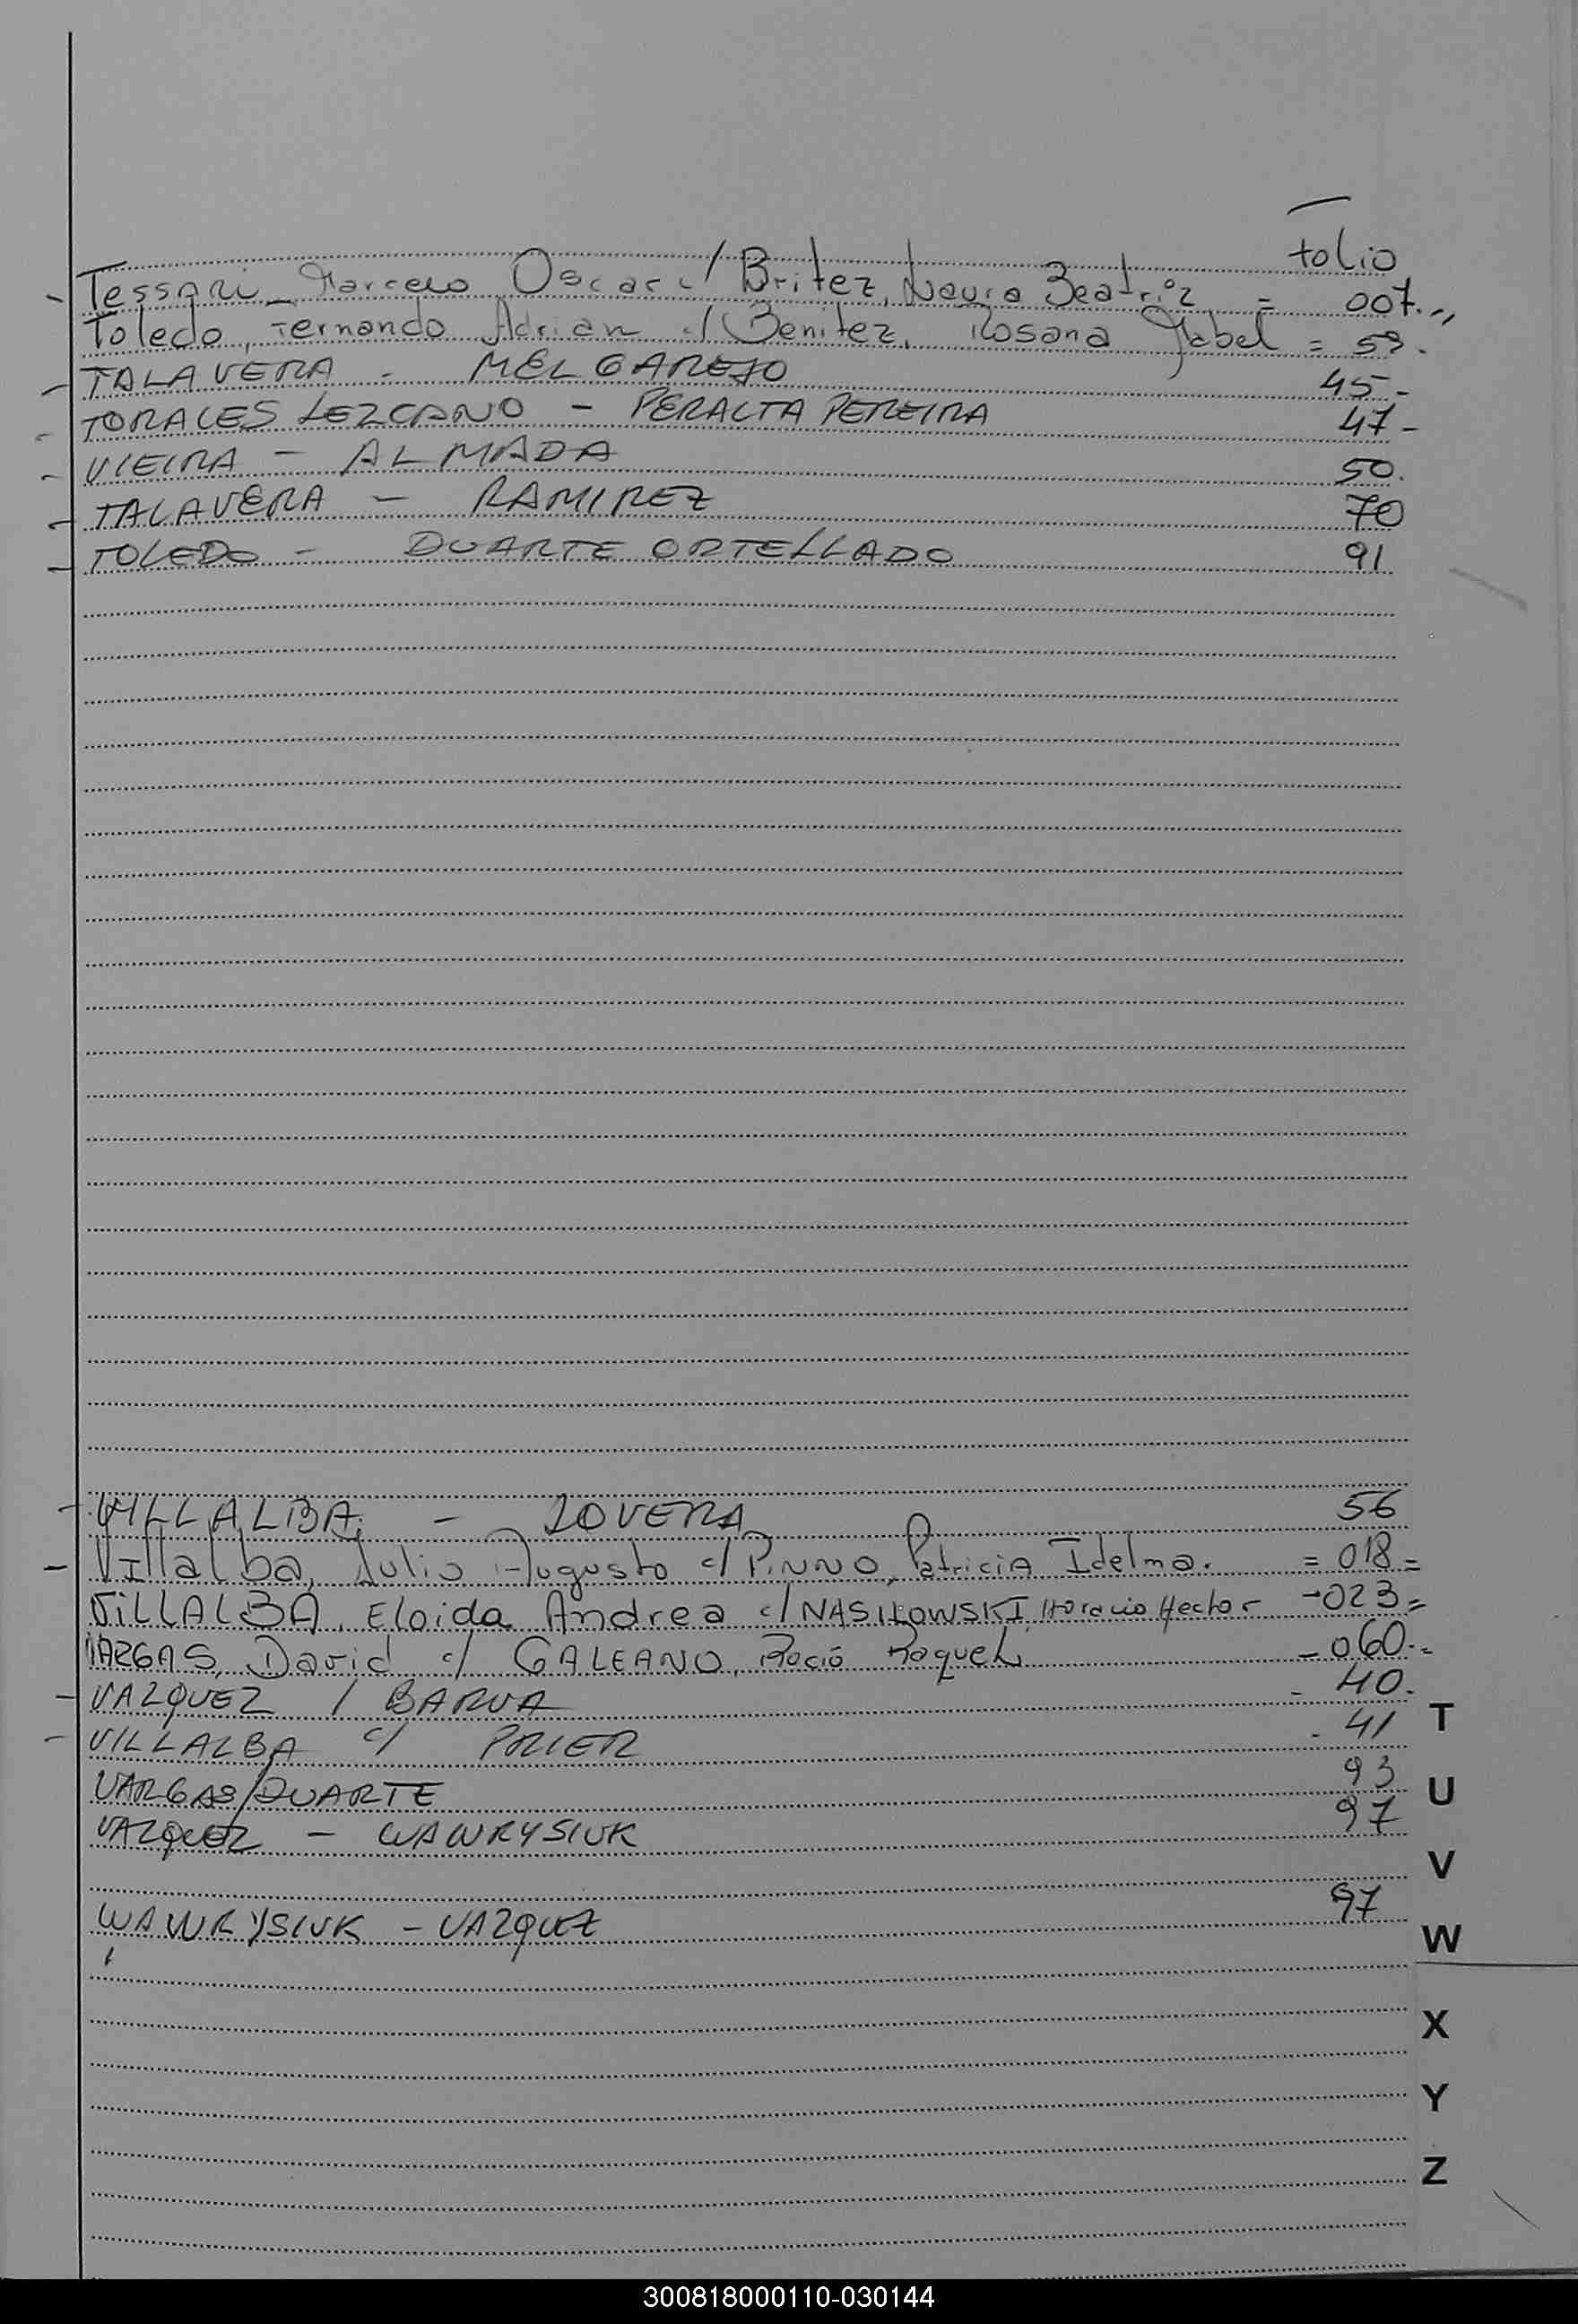 folio
- Tessari, Marcelo Oscar c/ Britez, Nayra Beatriz = 007.,,
Toledo, Fernando Adrian c/ Benitez, Rosana Mabel = 59.
- TALAVERA - MELGAREJO 45-
- TORALES LEZCANO - PERALTA PEREIRA 47-
- VIEIRA - ALMADA 50.
- TALAVERA - RAMIREZ 70
- TOLEDO - DUARTE ORTELLADO 91
- VILLALBA - LOVERA 56
- Villalba, Julio Augusto c/ PINNO, Patricia Idelma. = 018=
VILLALBA, Eloida Andrea c/ NASILOWSKI, Horacio Hector -023=
VARGAS, David c/ GALEANO, Rocío Raquel - 060.-
- VAZQUEZ / BARUA - 40.
- VILLALBA c/ PRIER - 41
VARGAS/DUARTE 93
VAZQUEZ - WAWRYSIUK 97
WAWRYSIUK - VAZQUEZ 97
T
U
V
W
X
Y
Z
300818000110-030144